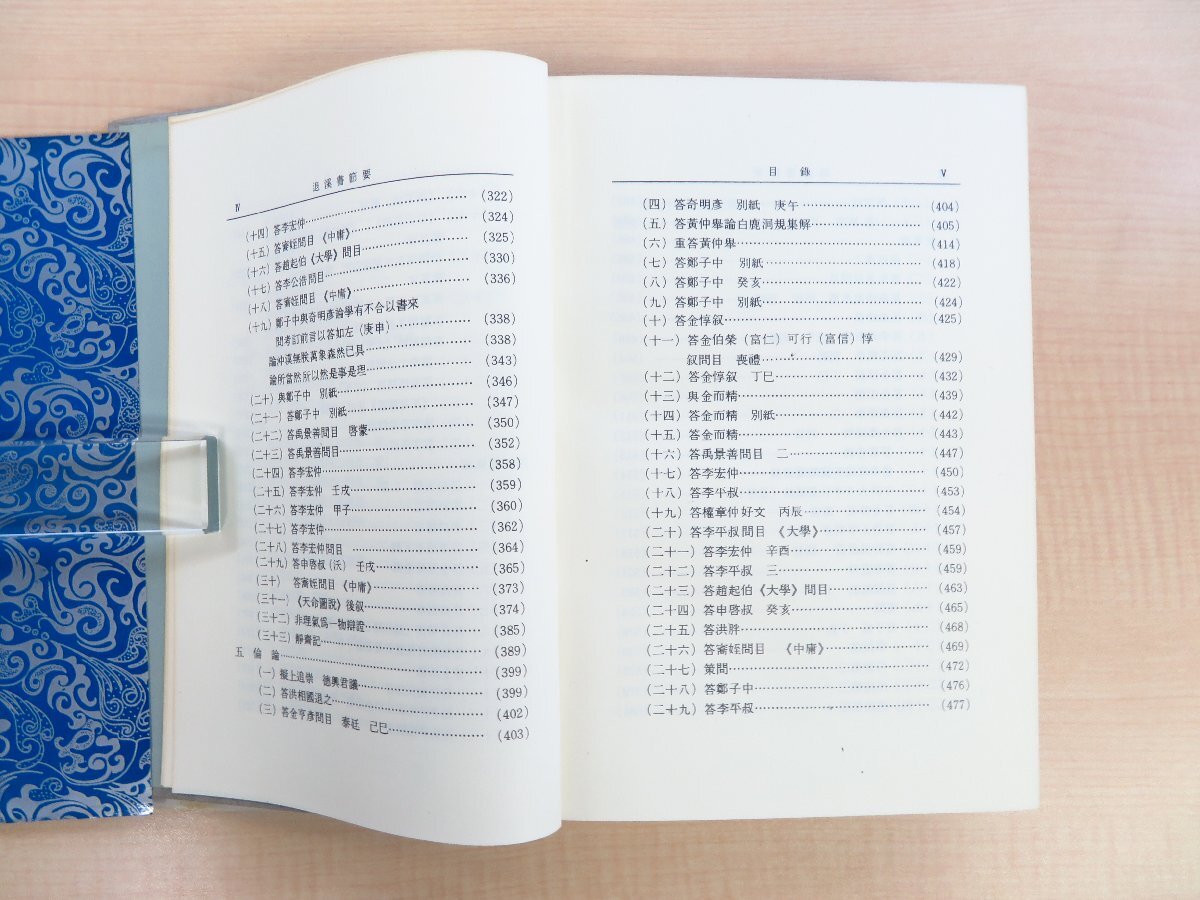 退溪書節要
Ⅳ
(十四) 答李宏仲……(322)
(十五) 答審姪問目《中庸》……(324)
(十六) 答趙起伯《大學》問目……(325)
(十七) 答李公浩問目……(330)
(十八) 答審姪問目《中庸》……(336)
(十九) 鄭子中與奇明彥論學有不合以書來
問考訂前言以答如左(庚申)……(338)
論沖漠無朕萬象森然已具……(338)
論所當然所以然是事是理……(343)
(二十) 與鄭子中 別紙……(346)
(二十一) 答鄭子中 別紙……(347)
(二十二) 答禹景善問目 啓蒙……(350)
(二十三) 答禹景善問目……(352)
(二十四) 答李宏仲……(358)
(二十五) 答李宏仲 壬戌……(359)
(二十六) 答李宏仲 甲子……(360)
(二十七) 答李宏仲……(362)
(二十八) 答李宏仲問目……(364)
(二十九) 答申啓叔(沃) 壬戌……(365)
(三十) 答審姪問目《中庸》……(373)
(三十一)《天命圖說》後叙……(374)
(三十二) 非理氣爲一物辯證……(385)
(三十三) 靜齋記……(389)
五 倫 論……(399)
(一) 擬上追崇 德興君議……(399)
(二) 答洪相國退之……(402)
(三) 答金亨彥問目 泰廷 己巳……(403)
目錄
Ⅴ
(四) 答奇明彥 別紙 庚午……(404)
(五) 答黃仲舉論白鹿洞規集解……(405)
(六) 重答黃仲舉……(414)
(七) 答鄭子中 別紙……(418)
(八) 答鄭子中 癸亥……(422)
(九) 答鄭子中 別紙……(424)
(十) 答金惇叙……(425)
(十一) 答金伯榮(富仁)可行(富信)惇
叙問目 喪禮……(429)
(十二) 答金惇叙 丁巳……(432)
(十三) 與金而精……(439)
(十四) 答金而精 別紙……(442)
(十五) 答金而精……(443)
(十六) 答禹景善問目 二……(447)
(十七) 答李宏仲……(450)
(十八) 答李平叔……(453)
(十九) 答權章仲好文 丙辰……(454)
(二十) 答李平叔問目《大學》……(457)
(二十一) 答李宏仲 辛酉……(459)
(二十二) 答李平叔 三……(459)
(二十三) 答趙起伯《大學》問目……(463)
(二十四) 答申啓叔 癸亥……(465)
(二十五) 答洪胖……(468)
(二十六) 答審姪問目 《中庸》……(469)
(二十七) 策問……(472)
(二十八) 答鄭子中……(476)
(二十九) 答李平叔……(477)